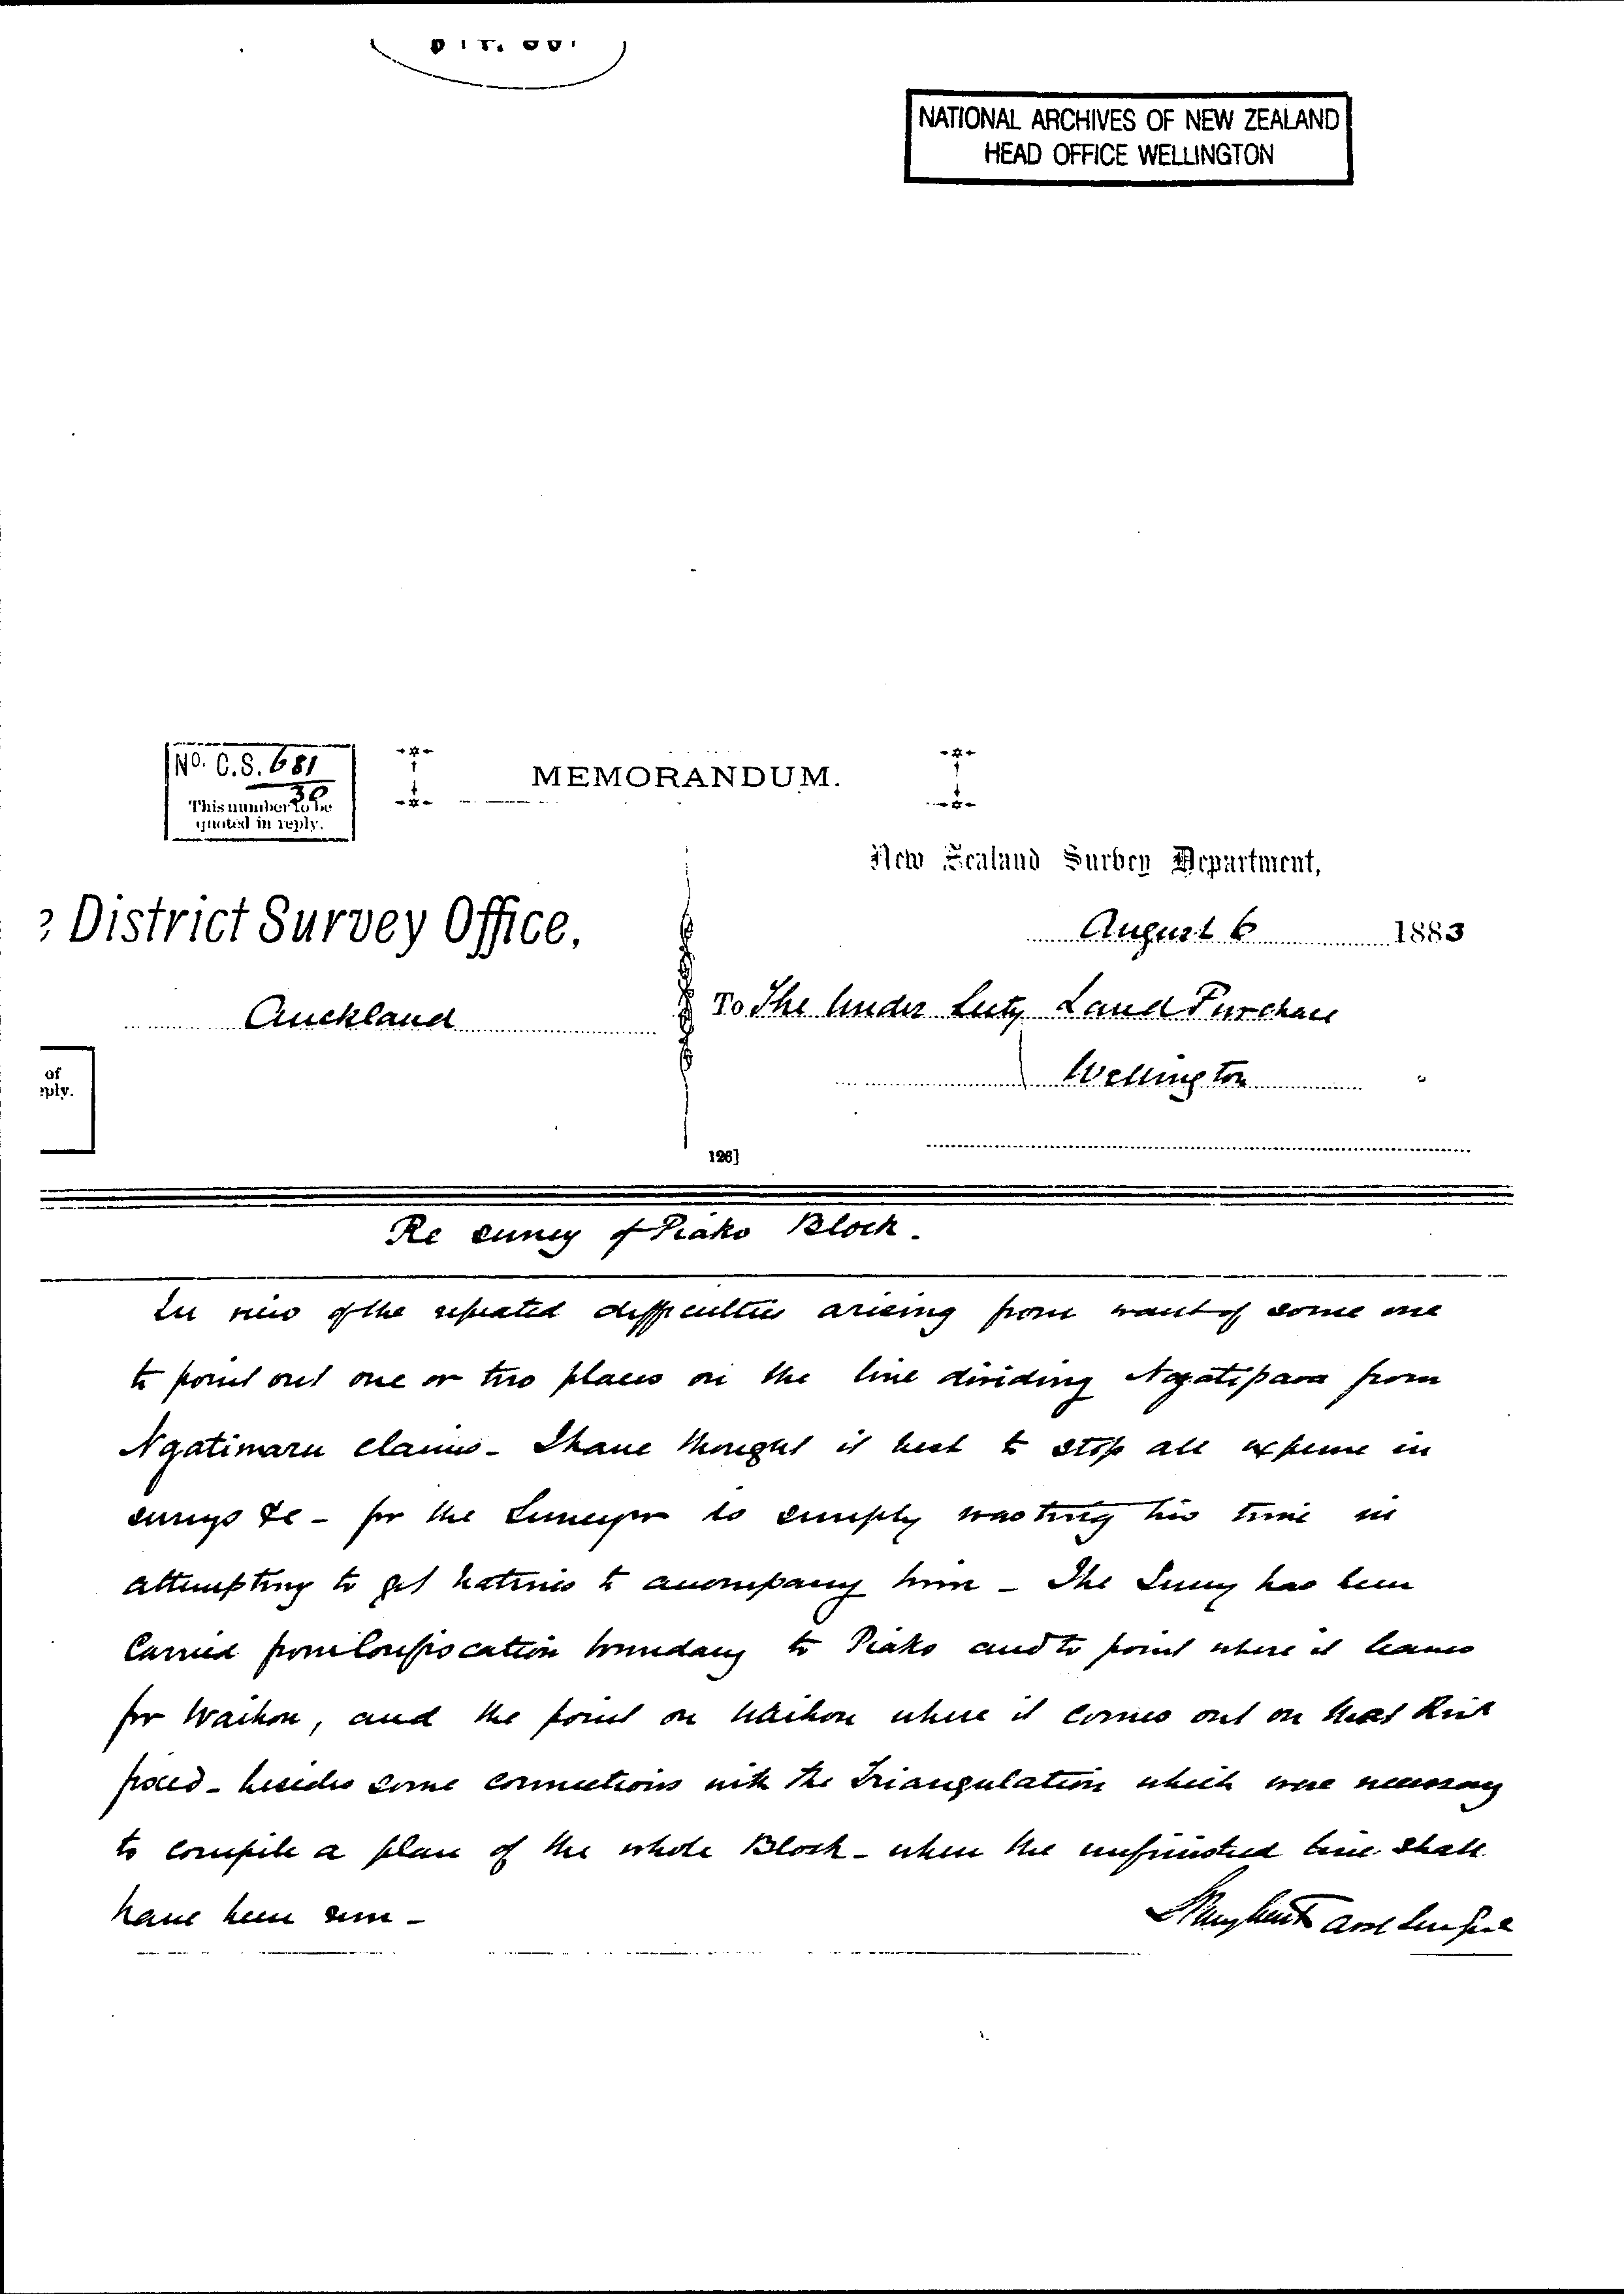 NATIONAL ARCHIVES OF NEW ZEALAND
HEAD OFFICE WELLINGTON
No. C.S. 681
30
This number to be
quoted in reply.
MEMORANDUM.
New Zealand Survey Department,
District Survey Office,
August 6 1883
Auckland
To The Under Secty Land Purchase
Wellington
of
eply.
126]
Re survey of Piako Block.
In view of the repeated difficulties arising from want of some one
to point out one or two places on the line dividing Ngatipaoa from
Ngatimaru claims - I have thought it best to stop all expense in
surveys &c - for the Surveyor is simply wasting his time in
attempting to get natives to accompany him - The Survey has been
Carried from Confiscation boundary to Piako and to point where it leaves
for Waihou, and the point on Waihou where it comes out on that
fixed - besides some connections with the Triangulation which were necessary
to compile a plan of the whole Block - when the unfinished line shall
have been run -